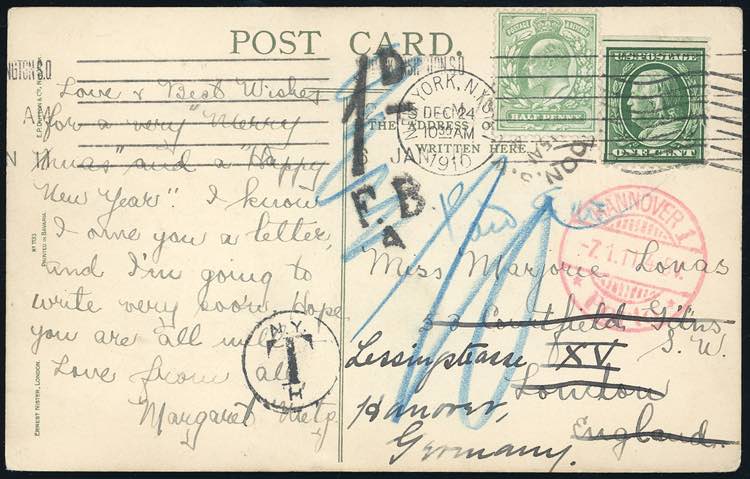 POST CARD.
NGTON S.O
Love & Best Wishes
for a very "Merry
Xmas" and a "Happy
New Year". I know
I owe you a letter,
and I'm going to
write very soon. Hope
you are all well.
Love from all
Margaret
E.P. DUTTON & CO.
Nº 1183
PRINTED IN BAVARIA.
ERNEST NISTER, LONDON.
N.Y.
T
1D
F.B
A
THE ADDRESS
WRITTEN HERE
NEW YORK, N.Y.
DEC 24
1030AM
1910
JAN
POSTAGE & REVENUE
HALF PENNY
U.S. POSTAGE
ONE CENT
HANNOVER 1
10
Miss Marjorie Lovas
33 Courtfield Gdns
S. W.
London
England.
Lessingstrasse XV
Hanover,
Germany.